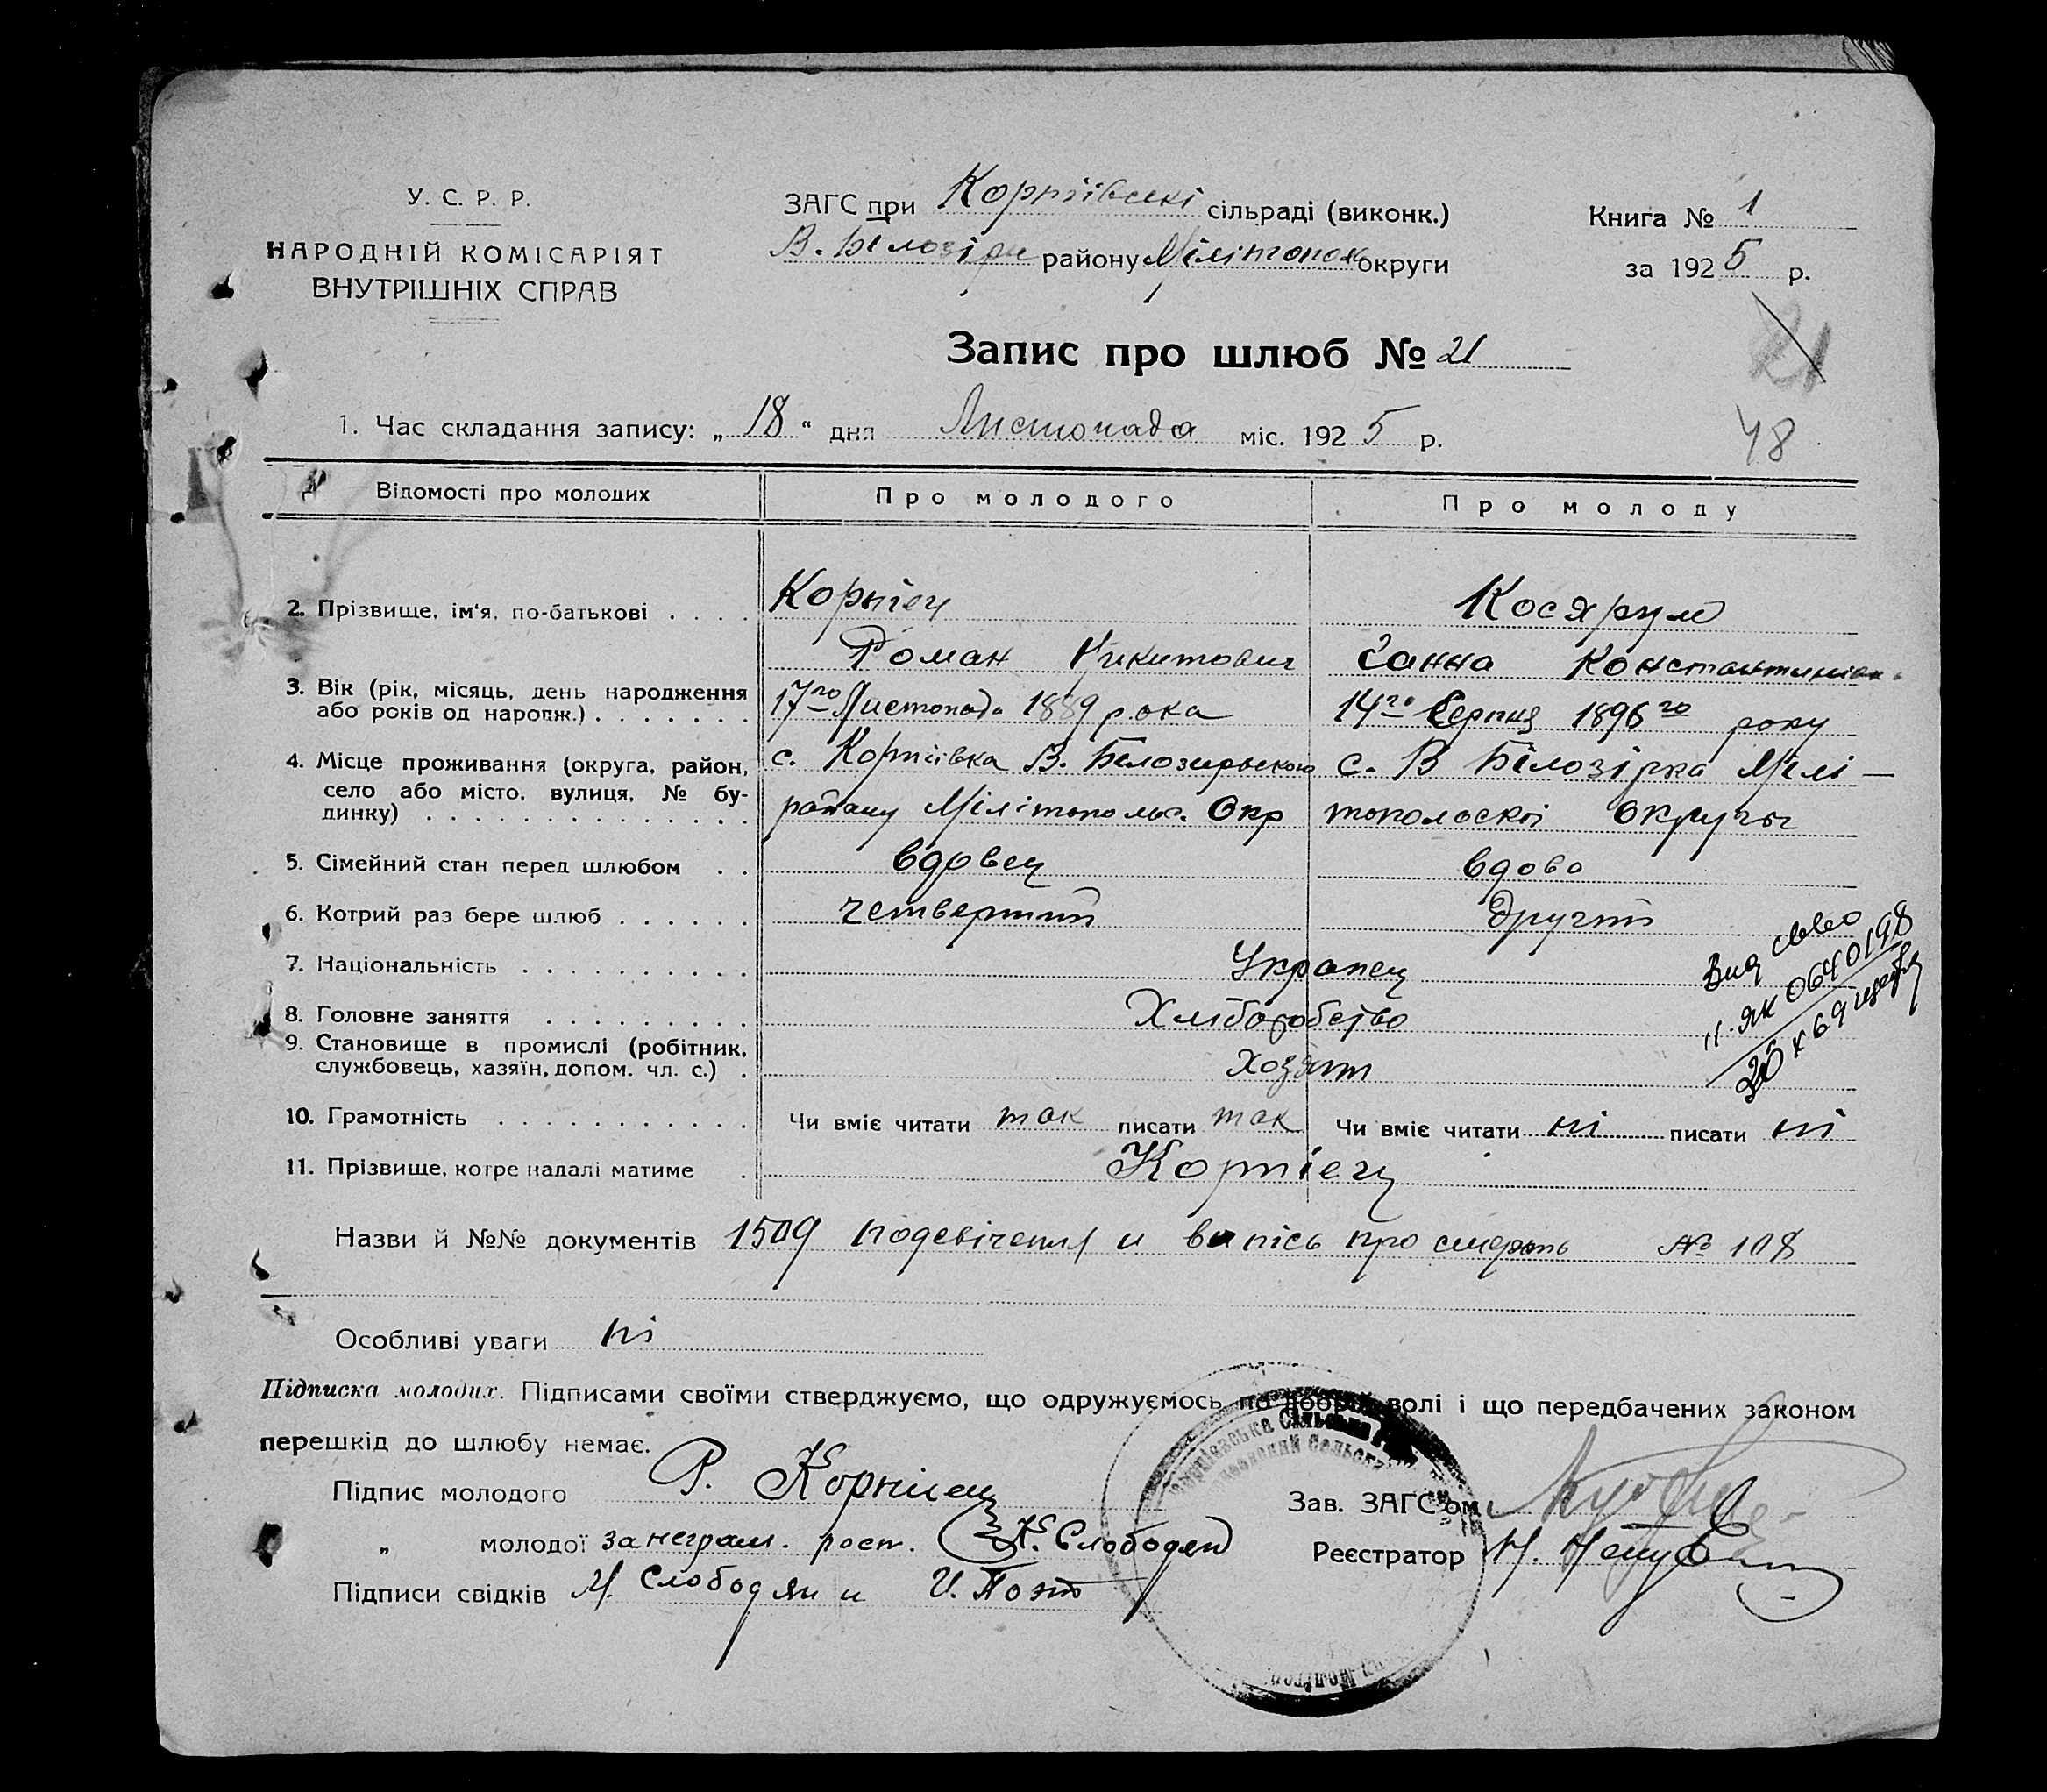 У. С. Р. Р.
НАРОДНІЙ КОМІСАРІЯТ
ВНУТРІШНІХ СПРАВ
ЗАГС при Корніївскі сільраді (виконк.)
В. Білозірк району Мілітопол округи
Книга № 1
за 1925 р.
21
Запис про шлюб № 21
48
1. Час складання запису: „18“ дня Листопада міс. 1925 р.
Відомості про молодих Про молодого Про молоду
2. Прізвище, ім'я, по-батькові . . . . Корнієц Косярум
Роман Никитович Ганна Константинівн
3. Вік (рік, місяць, день народження або років од народж.) . . . . . . . 17го Листопада 1889 рока 14го Серпня 1896го року
4. Місце проживання (округа, район, с. Корніївка В. Білозирьского с. В Білозірка Мілі-
село або місто, вулиця, № будинку) . . . . . . . . . . . . . . району Мілітопольс. Окр топольскої Округы
5. Сімейний стан перед шлюбом . . вдовец вдова
6. Котрий раз бере шлюб . . . . . . четвертий другий
7. Національність . . . . . . . . . . Украпец
8. Головне заняття . . . . . . . . . Хліборобство
9. Становище в промислі (робітник, службовець, хазяїн, допом. чл. с.) . хозяін
10. Грамотність . . . . . . . . . . . Чи вміє читати так писати так Чи вміє читати ні писати ні
11. Прізвище, котре надалі матиме . Корнієц
ЯК 0640198
Назви й №№ документів 1509 посвічення и випісь про смерть № 108
Особливі уваги ні
Підписка молодих. Підписами своїми стверджуємо, що одружуємось по добрій волі і що передбачених законом
перешкід до шлюбу немає.
Підпис молодого Р. Корніец
Зав. ЗАГС'ом
„ молодої за неграм. росп. К. Слободян
Реєстратор
Підписи свідків М. Слободян и И. Поэт